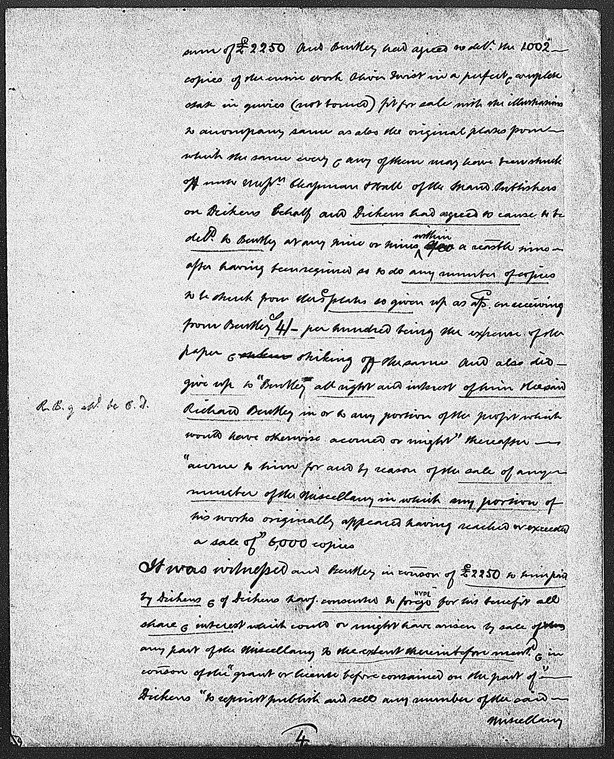 sum of £2250 And Bentley had agreed to delr. the 1002
copies of the entire work Oliver Twist in a perfect & complete
state in quires (not bound) fit for sale with the illustrations
to accompany same as also the original plates from
which the same every & any of them may have been struck
off unto Messrs. Chapman & Hall of the Strand Publishers
on Dickens behalf and Dickens had agreed to cause to be
deld. to Bentley at any time or times within a reasble time
after having been required so to do any number of copies
to be struck from the sd. plates so given up as afsd. on receiving
from Bentley 4/- per hundred being the expense of the
paper & striking off the same And also did
give up to "Bentley" all right and interest of him the said
R.B. q shd. be C.D.
Richard Bentley in or to any portion of the profit which
would have otherwise accrued or might" thereafter
"accrue to him for and by reason of the sale of any
number of the Miscellany in which any portion of
his works originally appeared having reached or exceeded
a sale of" 6,000 copies
It was witnessed and Bentley in conson of £2250 to him paid
by Dickens & of Dickens havg. consented to forego for his benefit all
NYPL
share & interest which could or might have arisen by sale of
any part of the Miscellany to the extent thereinbefore mentd. & in
conson of the "grant or license before contained on the part of"
Dickens "to reprint publish and sell any number of the said
Miscellany
4